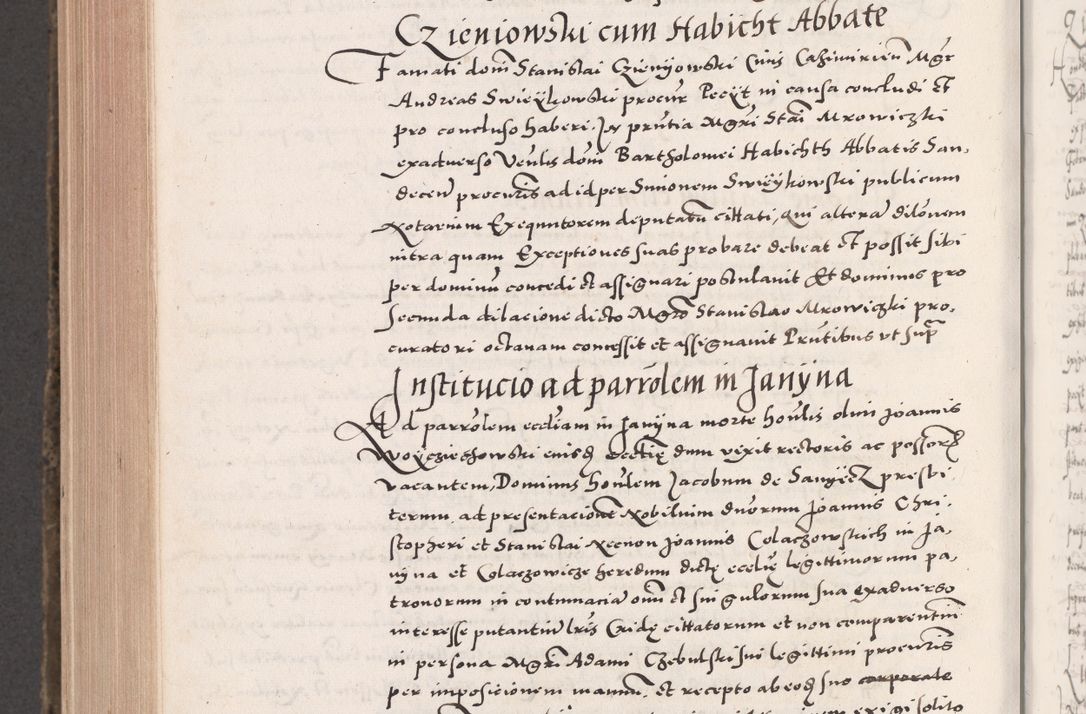 Czieniowski cum Habicht Abbate
Famati domī Stanislai Czienijowski Civis Casimirien̄ Mgr
Andreas Swieijkowski procur̄ Pecijt in causa concludi et
pro concluso haberi. In pr̄ntia Mgrī Stai Mrowiczki
exadverso Venlis domī Bartholomei Habichth Abbatis San,
decen̄ procur̄is ad id per Simonem Swieijkowski publicum
Notarium Exequutorem deputatū cittati, qui alterā dilōnem
intra quam Exceptiones suas probare debeat et possit sibi
per dominū concedi et assignari postulavit Et dominus pro
secunda dilacione dicto Mgrō Stanislao Mrowiczki pro,
curatori octavam concessit et assignavit Pr̄ntibus ut supr̄
Institucio ad parrōlem in Janijna
Ad parrōlem eccliam in Janijna morte honlis olim Joannis
Woijcziechowski eiusdꝫ ecclię dum vixit rectoris ac possor̄
vacantem, Dominus honlem Jacobum de presbi,
terum ad presentacionē Nobilium duorum Joannis Chri,
stopheri et Stanislai Necnon Joannis Colaczowskich in Ja,
nijna et Colaczowicze heredum dictę ecclię legittimorum pa,
tronorum in contumaciā oim̄ et singulorum sua exadverso
interesse putantiū lrīs Cridę cittatorum et non comparentiū
in persona Mgrī Adami Czebulski sui legittimi procurīs
per imposicionem manuū, et recepto ab eodꝫ suo corporale
exigi solito